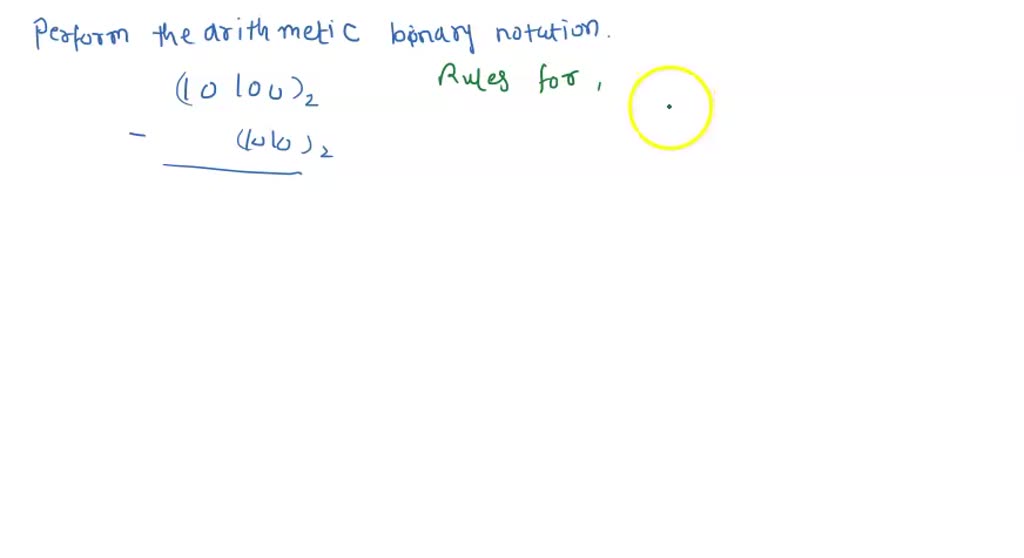 Perform the arithmetic binary notation.
(10100)₂ Rules for,
- (1010)₂